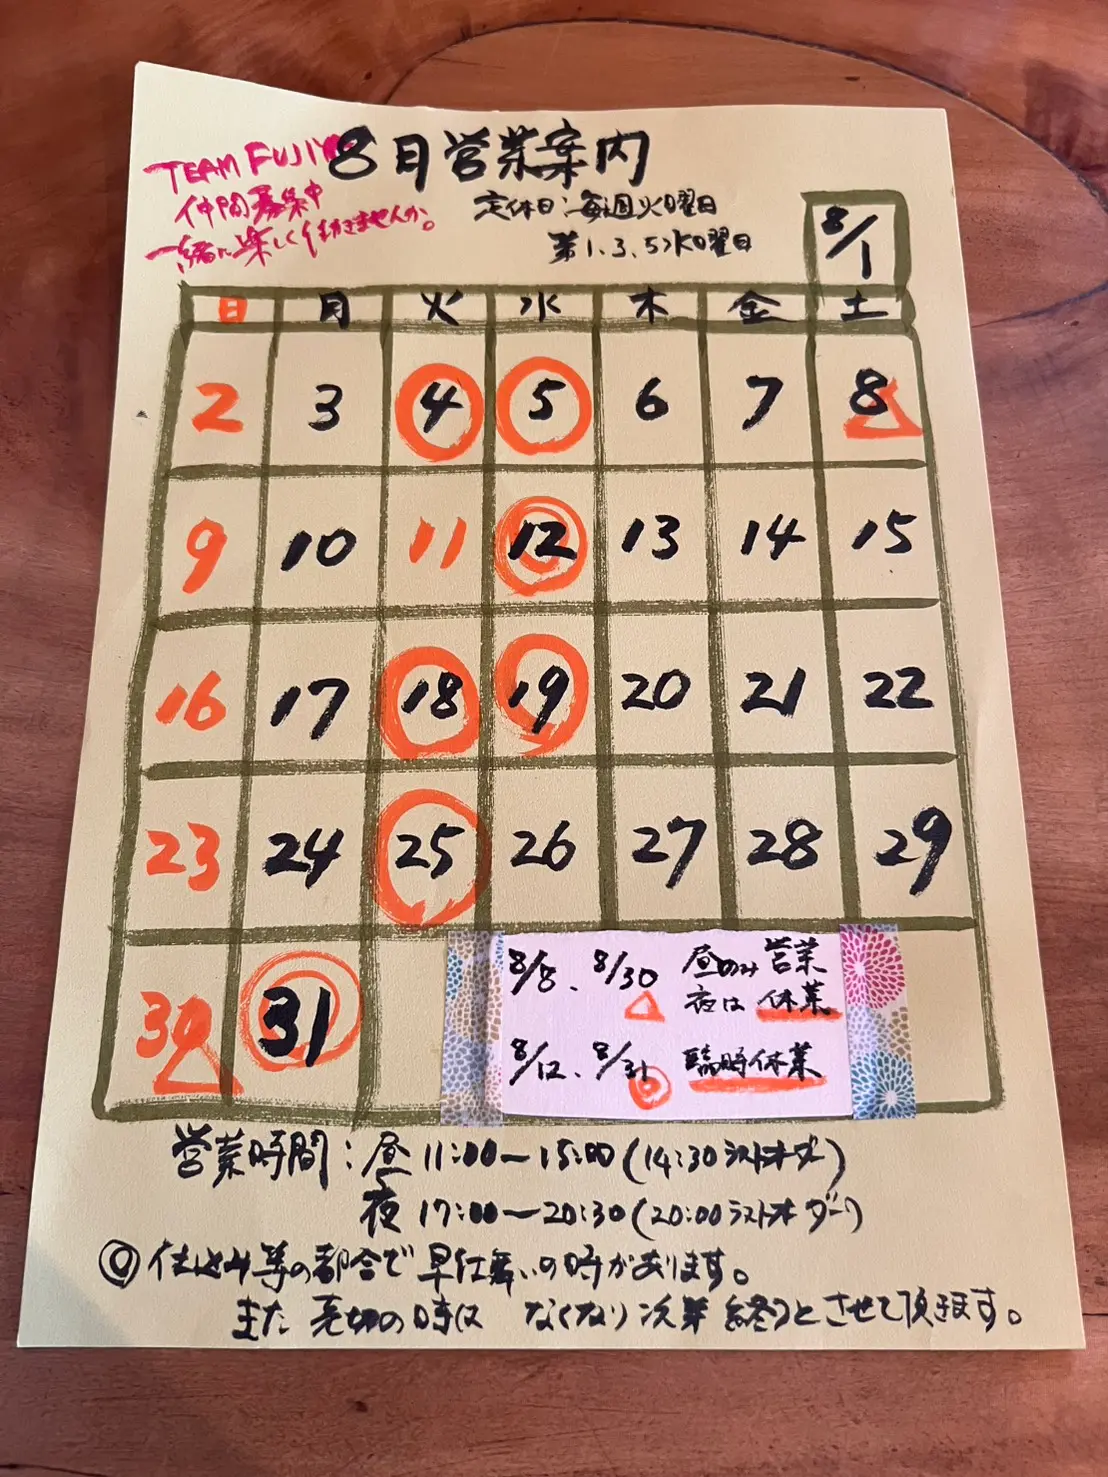 TEAM FUJIYA
仲間募集中
一緒に楽しく働きませんか。
8月営業案内
定休日:毎週火曜日
第1.3.5水曜日
8/1
日 月 火 水 木 金 土
2 3 4 5 6 7 8
9 10 11 12 13 14 15
16 17 18 19 20 21 22
23 24 25 26 27 28 29
30 31
8/8、8/30 昼のみ営業
夜は休業
8/12、8/31 臨時休業
営業時間:昼11:00~15:00(14:30ラストオーダー)
夜17:00~20:30(20:00ラストオーダー)
◎仕込み等の都合で早仕舞いの時があります。
また売切の時はなくなり次第終了とさせて頂きます。